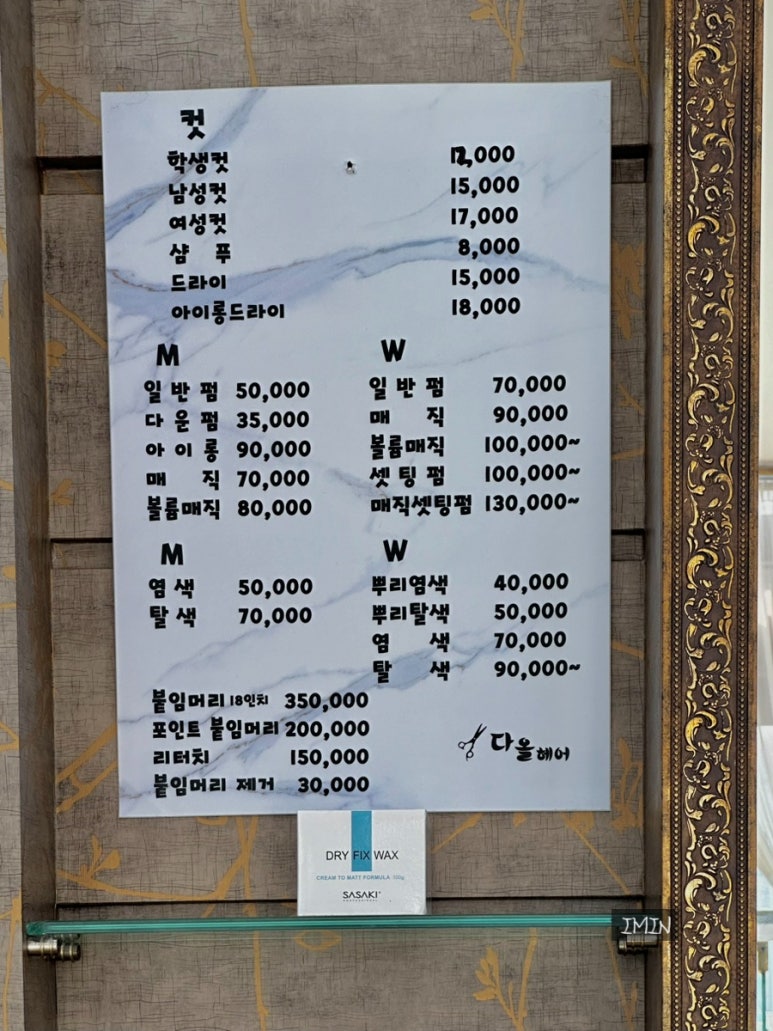 컷
학생컷 12,000
남성컷 15,000
여성컷 17,000
샴 푸 8,000
드라이 15,000
아이롱드라이 18,000
M
일반펌 50,000
다운펌 35,000
아이롱 90,000
매 직 70,000
볼륨매직 80,000
W
일반펌 70,000
매 직 90,000
볼륨매직 100,000~
셋팅펌 100,000~
매직셋팅펌 130,000~
M
염색 50,000
탈색 70,000
W
뿌리염색 40,000
뿌리탈색 50,000
염 색 70,000
탈 색 90,000~
붙임머리 18인치 350,000
포인트 붙임머리 200,000
리터치 150,000
붙임머리 제거 30,000
다올헤어
DRY FIX WAX
CREAM TO MATT FORMULA 100g
SASAKI
PROFESSIONAL
IMIN